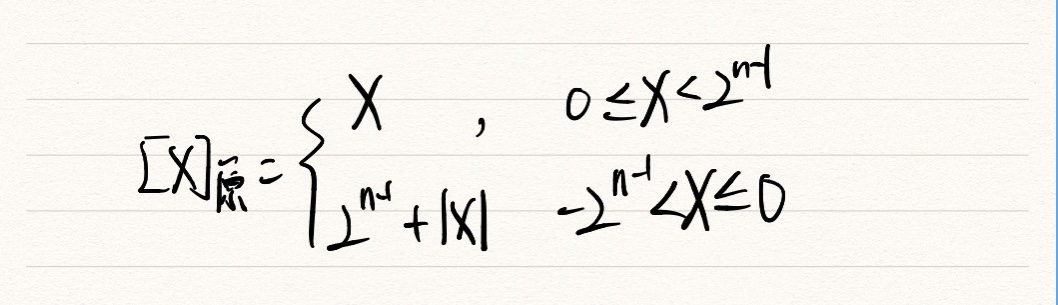 [X]原 = { X , 0 ≤ X < 2^{n-1}
2^{n-1} + |X| -2^{n-1} < X ≤ 0